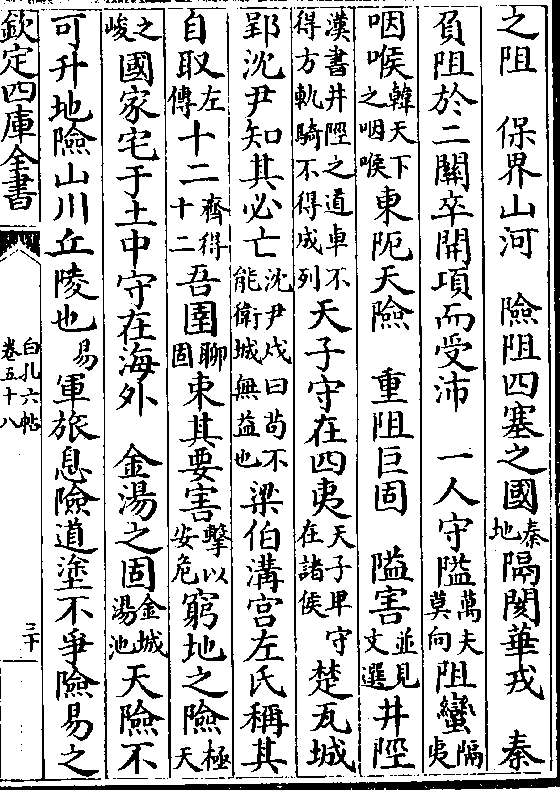 之阻　保界山河　險阻四塞之國秦地隔閡華戎　秦
負阻於二關卒開項而受沛　一人守隘萬夫莫向阻蠻隔夷
咽喉韓天下之咽喉東阨天險　重阻巨固　隘害並見文選井陘
漢書井陘之道車不得方軌騎不得成列天子守在四夷天子卑守在諸侯楚瓦城
郢沈尹知其必亡沈尹戍曰苟不能衛城無益也梁伯溝宮左氏稱其
自取左傳十二齊得十二吾圉聊固束其要害擊以安危窮地之險極天
之峻國家宅于土中守在海外　金湯之固金城湯池天險不
可升地險山川丘陵也易軍旅息險道塗不爭險易之
欽定四庫全書
白孔六帖
卷五十八
三十